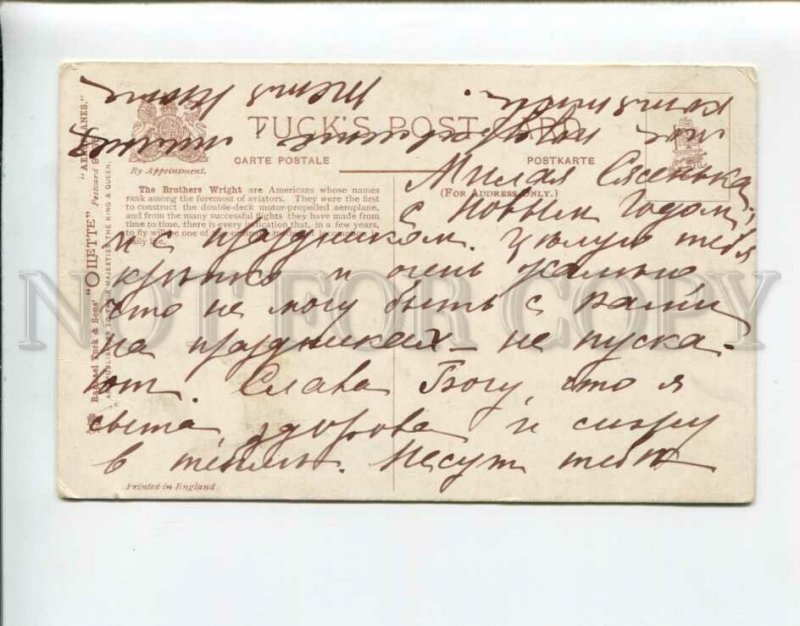 TUCK'S POST CARD
CARTE POSTALE
POSTKARTE
By Appointment.
(FOR ADDRESS ONLY.)
The Brothers Wright are Americans whose names
rank among the foremost of aviators. They were the first
to construct the double-deck motor-propelled aeroplane,
and from the many successful flights they have made from
time to time, there is every indication that, in a few years,
to fly will be one of
daily life.
Raphael Tuck & Sons' "OILETTE" Postcard
"AEROPLANES."
TO THEIR MAJESTIES THE KING & QUEEN.
Милая
с Новым Годом,
и с праздником. Цѣлую тебя
крѣпко и очень жалко
что не могу быть с вами
на праздниках — не пуска-
ют. Слава Богу, что я
здорова и сижу
в теплѣ. Несут
Printed in England.
NOT FOR COPY